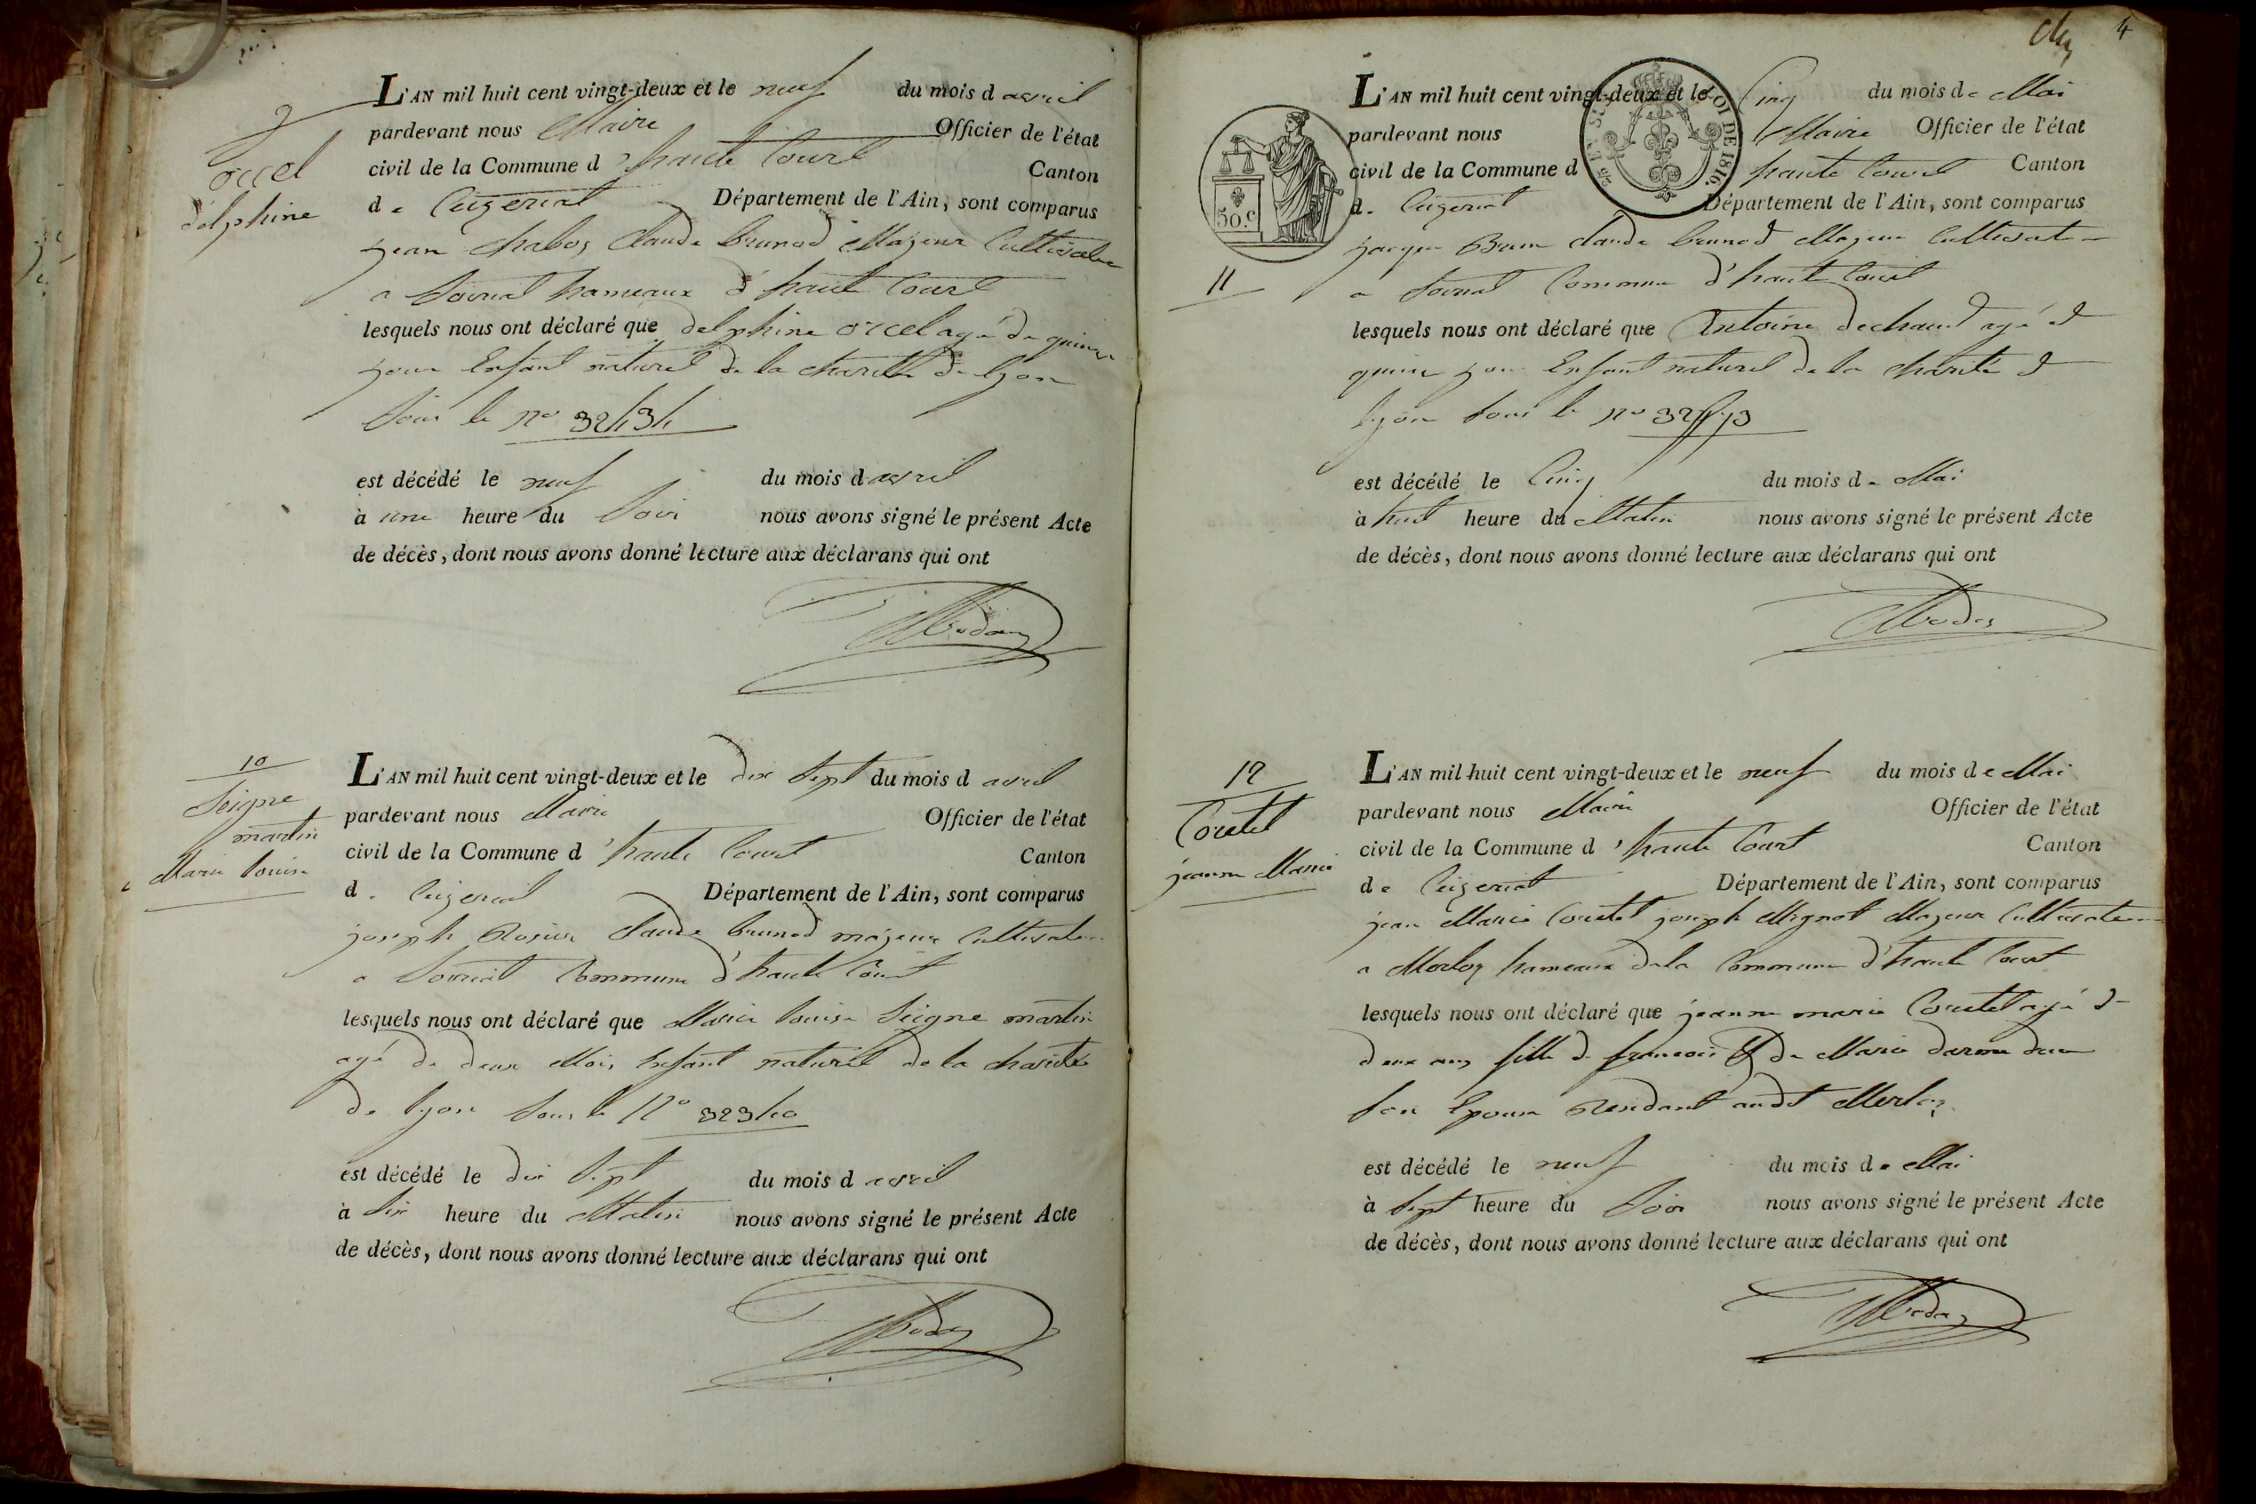 9
orcel
delphine
L'AN mil huit cent vingt-deux et le neuf du mois d avril
pardevant nous Maire Officier de l'état
civil de la Commune d'haute Court Canton
de Ceizeriat Département de l'Ain, sont comparus
jean Claude brunod Majeur Cultivateur
a Soiriat hameaux d'haute Court
lesquels nous ont déclaré que delphine orcel agé de quinze
jour Enfant naturel de la charité de lyon
Sous le no 32434
est décédé le neuf du mois d avril
à une heure du Soir nous avons signé le présent Acte
de décès, dont nous avons donné lecture aux déclarans qui ont
10
Seigne
martin
Marie louise
L'AN mil huit cent vingt-deux et le dix Sept du mois d avril
pardevant nous Maire Officier de l'état
civil de la Commune d'haute Court Canton
de Ceizeriat Département de l'Ain, sont comparus
joseph Rosier Claude brunod majeur Cultivateur
a Soiriat Commune d'haute Court
lesquels nous ont déclaré que Marie louise Seigne martin
agé de deux Mois Enfant naturel de la charité
de lyon Sous le No 32340
est décédé le dix Sept du mois d avril
à Six heure du Matin nous avons signé le présent Acte
de décès, dont nous avons donné lecture aux déclarans qui ont
4
50.c
LOI DE 1816.
11
L'AN mil huit cent vingt-deux et le Cinq du mois de Mai
pardevant nous Maire Officier de l'état
civil de la Commune d haute Court Canton
de Ceizeriat Département de l'Ain, sont comparus
jacque Claude brunod Majeur Cultivateur
a Soiriat Commune d'haute Court
lesquels nous ont déclaré que Antoine dechaud agé d
quinze jour Enfant naturel de la charité d
lyon Sous le no
est décédé le Cinq du mois de Mai
à huit heure du Matin nous avons signé le présent Acte
de décès, dont nous avons donné lecture aux déclarans qui ont
12
Coretel
jeanne Marie
L'AN mil huit cent vingt-deux et le neuf du mois de Mai
pardevant nous Maire Officier de l'état
civil de la Commune d'haute Court Canton
de Ceizeriat Département de l'Ain, sont comparus
jean Marie Coretel joseph Mignot Majeur Cultivateur
a Merloz hameaux dela Commune d'haute Court
lesquels nous ont déclaré que jeanne marie Coretel agé d
deux ans fille de francois & de Marie
Son Epouse Residant audt Merloz
est décédé le neuf du mois de Mai
à Sept heure du Soir nous avons signé le présent Acte
de décès, dont nous avons donné lecture aux déclarans qui ont